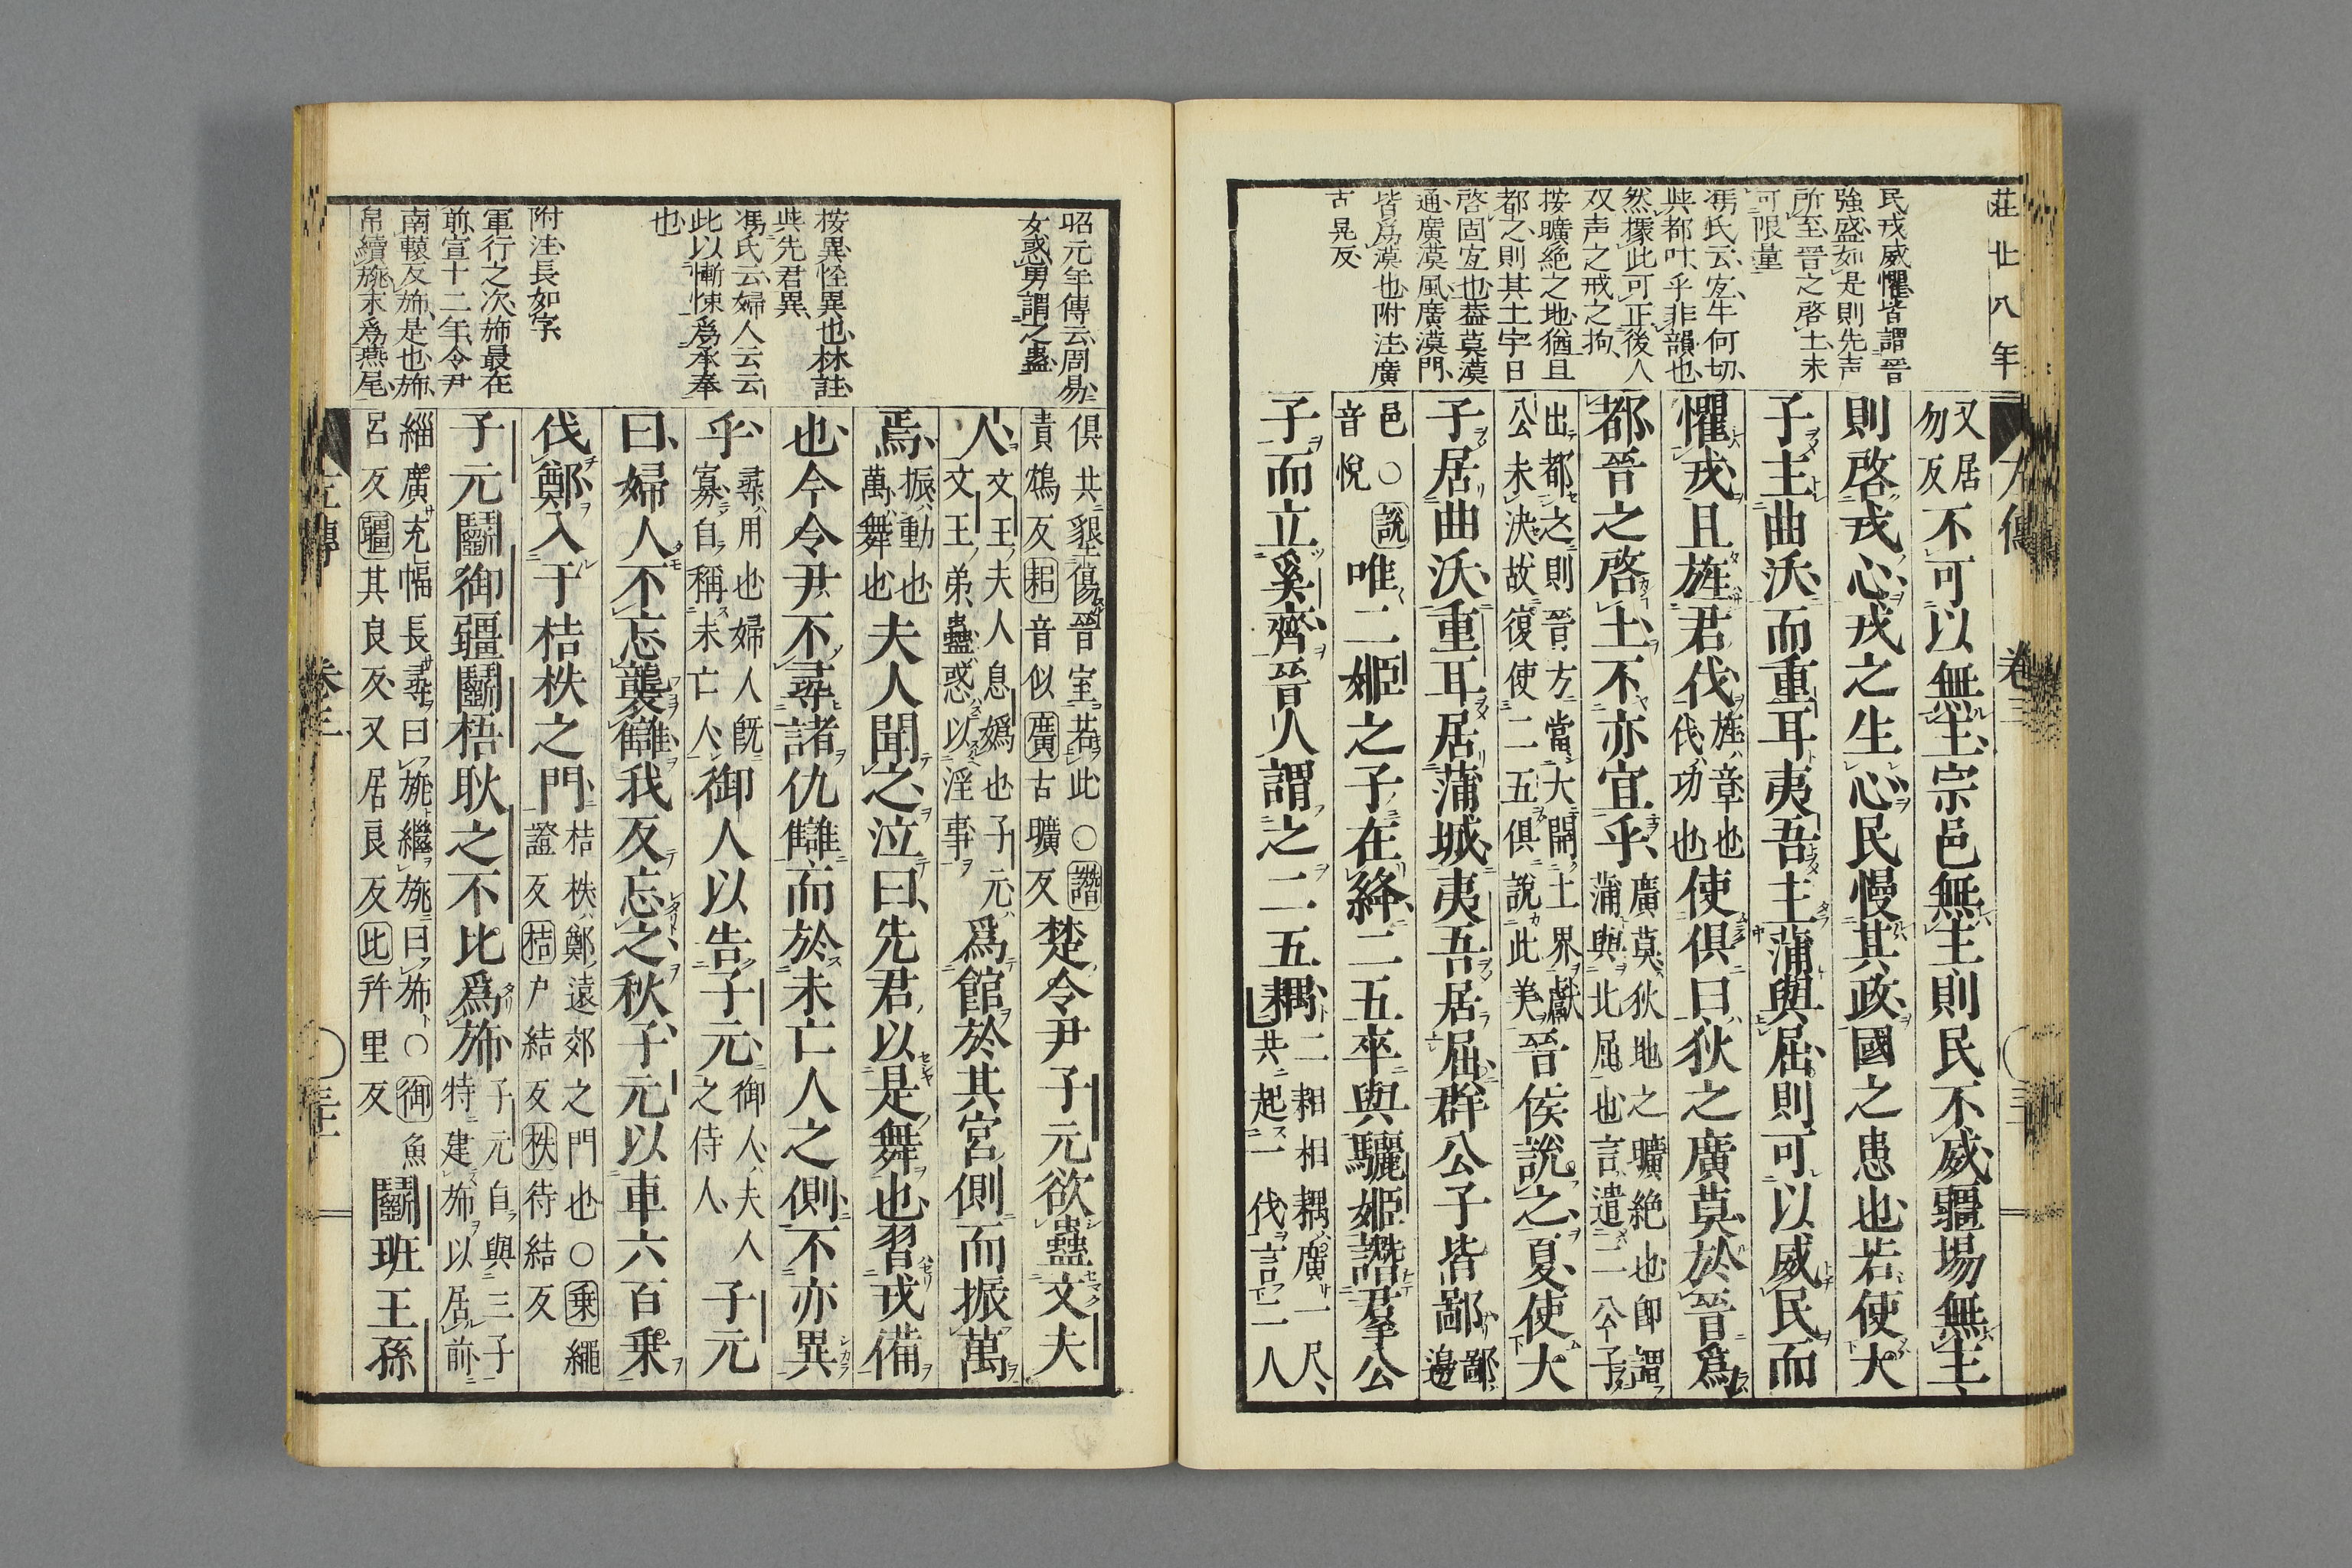 莊廿八年
民戎威懼皆謂晉
強盛如是則先声
所至晉之啓土未
可限量
馮氏云宐牛何切
與都叶乎非韻也
然據此可正後人
双声之戒之拘
按曠絶之地猶且
都之則其土宇日
啓固宐也葢莫漠
通廣漠風廣漠門
皆爲漠也附注廣
古晃反
又居
勿反
不可以無主宗邑無主則民不威疆埸無主
則啓戎心戎之生心民慢其政國之患也若使大
子主曲沃而重耳夷吾主蒲與屈則可以威民而
懼戎且旌君伐
旌章也
伐功也
使俱曰狄之廣莫於晉爲
都晉之啓土不亦宜乎
廣莫狄地之曠絶也卽謂
蒲與北屈也言遣二公子
出都之則晉方當大開土界獻
公未決故復使二五俱說此美
晉侯說之夏使大
子居曲沃重耳居蒲城夷吾居屈群公子皆鄙
鄙
邊
邑○說
音悅
唯二姬之子在絳二五卒與驪姬譖羣公
子而立奚齊晉人謂之二五耦
二耜相耦廣一尺
共起一伐言二人
左傳 卷三
昭元年傳云周易
女惑男謂之蠱
按異怪異也林註
與先君異
馮氏云婦人云云
此以慚悚爲承奉
也
附注長如字
軍行之次斾最在
前宣十二年令尹
南轅反斾是也斾
帛續旐末爲燕尾
俱共墾傷晉室若此○譖
責鴆反耜音似廣古曠反
楚令尹子元欲蠱文夫
人
文王夫人息嬀也子元
文王弟蠱惑以淫事
爲館於其宮側而振萬
焉
振動也
萬舞也
夫人聞之泣曰先君以是舞也習戎備
也今令尹不尋諸仇讎而於未亡人之側不亦異
乎
尋用也婦人旣
寡自稱未亡人
御人以告子元
御人夫人
之侍人
子元
曰婦人不忘襲讎我反忘之秋子元以車六百乗
伐鄭入于桔柣之門
桔柣鄭遠郊之門也○乗繩
證反桔户結反柣待結反
子元鬭御疆鬭梧耿之不比爲斾
子元自與三子
特建斾以居前
緇廣充幅長尋曰旐繼旐曰斾○御魚
呂反疆其良反又居良反比幷里反
鬭班王孫
左傳 卷三